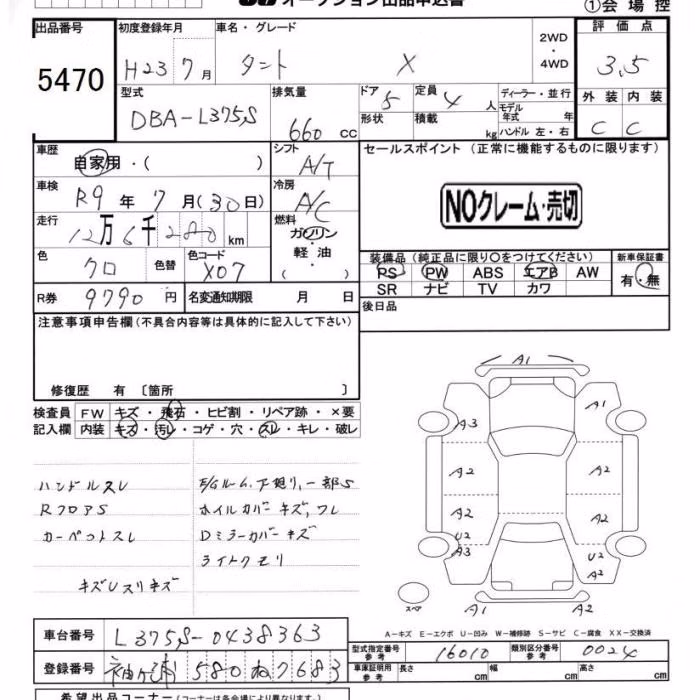 オークション出品申込書
①会場控
出品番号
5470
初度登録年月
H23 7月
車名・グレード
タント X
2WD
・
4WD
評価点
3.5
型式
DBA-L375S
排気量
660 cc
ドア 5
形状
定員 4 人
積載 kg
ディーラー・並行
モデル年式 年
ハンドル 左・右
外装 内装
C C
車歴
自家用・( )
シフト
A/T
セールスポイント(正常に機能するものに限ります)
NOクレーム・売切
車検
R9年 7月(30日)
冷房
A/C
走行
12万6千280km
燃料
ガソリン
・
軽油
( )
色
クロ
色替
色コード
X07
装備品(純正品に限り〇をつけてください)
PS PW ABS エアB AW
SR ナビ TV カワ
新車保証書
有・無
R券 9790円
名変通知期限 月 日
後日品
注意事項申告欄(不具合内容等は具体的に記入して下さい)
修復歴 有〔箇所 〕
検査員記入欄
FW キズ・飛石・ヒビ割・リペア跡・×要
内装 キズ・汚レ・コゲ・穴・スレ・キレ・破レ
ハンドルスレ
RフロアS
カーペットスレ
キズUスリキズ
E/Gルーム、下廻リ、一部S
ホイルカバーキズ、ワレ
Dミラーカバーキズ
ライトクモリ
A1
A3 A1
A2 A2
A2 A2
U2 A3
U2 A2
スペア
A1 A2
A-キズ E-エクボ U-凹み W-補修跡 S-サビ C-腐食 XX-交換済
車台番号 L375S-0438363
型式指定番号 参考 16010
類別区分番号 参考 0024
登録番号 袖ケ浦 580 ね 7683
車庫証明用 参考 長さ cm 幅 cm 高さ cm
希望出品コーナー(コーナーは各会場により異なります。)